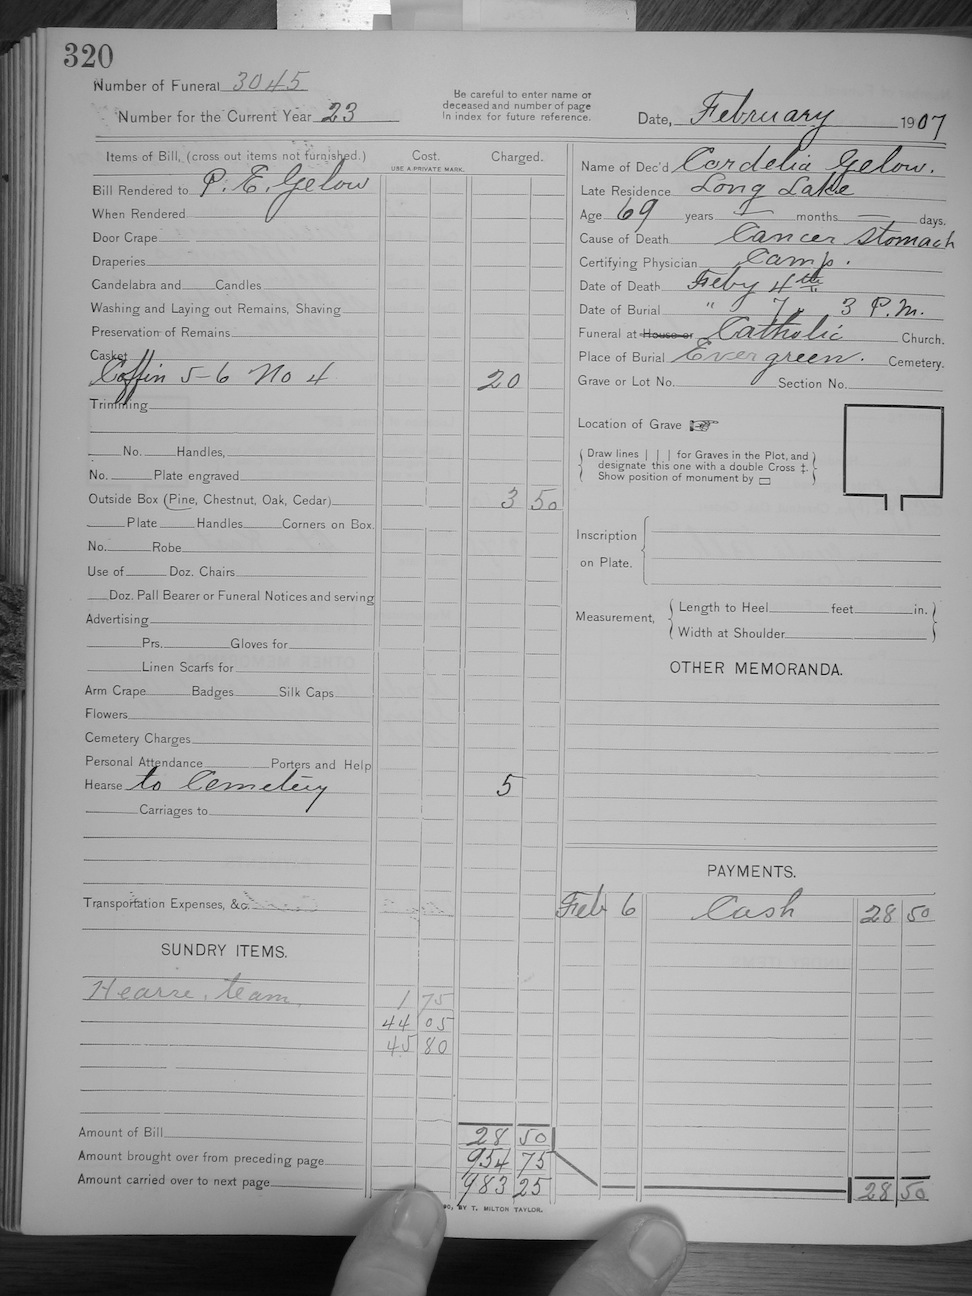 320
Number of Funeral 3045
Number for the Current Year 23
Be careful to enter name of
deceased and number of page
In index for future reference.
Date, February 1907
Items of Bill, (cross out items not furnished.)
Cost.
USE A PRIVATE MARK.
Charged.
Bill Rendered to P. E. Gelow
When Rendered
Door Crape
Draperies
Candelabra and Candles
Washing and Laying out Remains, Shaving
Preservation of Remains
Casket
Coffin 5-6 No 4 20
Trimming
No. Handles,
No. Plate engraved
Outside Box (Pine, Chestnut, Oak, Cedar) 3 50
Plate Handles Corners on Box.
No. Robe
Use of Doz. Chairs
Doz. Pall Bearer or Funeral Notices and serving
Advertising
Prs. Gloves for
Linen Scarfs for
Arm Crape Badges Silk Caps
Flowers
Cemetery Charges
Personal Attendance Porters and Help
Hearse to Cemetery 5
Carriages to
Transportation Expenses, &c.
SUNDRY ITEMS.
Hearse team 1 75
44 05
45 80
Amount of Bill 28 50
Amount brought over from preceding page 954 75
Amount carried over to next page 983 25
Name of Dec'd Cordelia Gelow.
Late Residence Long Lake
Age 69 years — months — days.
Cause of Death Cancer Stomach
Certifying Physician Camp.
Date of Death Feby 4th
Date of Burial " 7. 3 P.M.
Funeral at House or Catholic Church.
Place of Burial Evergreen. Cemetery.
Grave or Lot No. Section No.
Location of Grave
Draw lines | | | for Graves in the Plot, and
designate this one with a double Cross ‡.
Show position of monument by ▭
Inscription
on Plate.
Measurement,
Length to Heel feet in.
Width at Shoulder
OTHER MEMORANDA.
PAYMENTS.
Feb 6 Cash 28 50
28 50
BY T. MILTON TAYLOR.